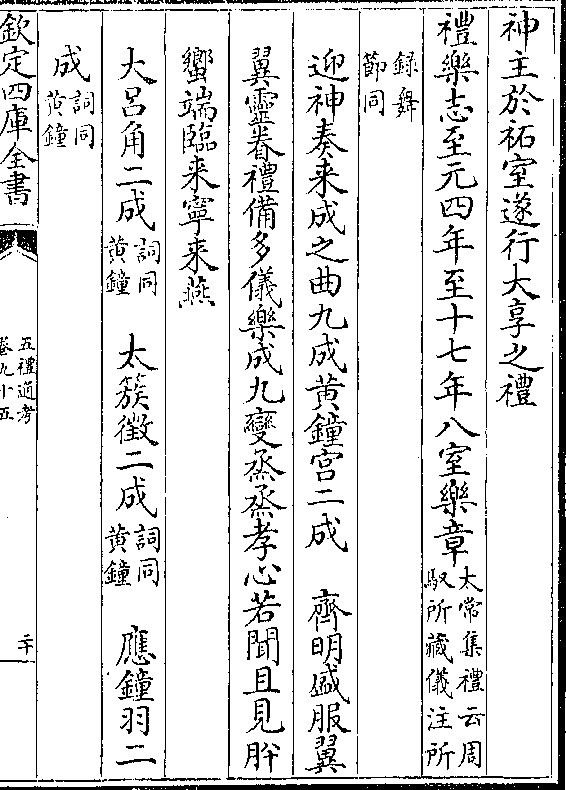 神主於祏室遂行大享之禮
禮樂志至元四年至十七年八室樂章太常集禮云周
馭所藏儀注所
録舞
節同
迎神奏来成之曲九成黄鐘宫二成　齊明盛服翼
翼靈眷禮備多儀樂成九變烝烝孝心若聞且見肸
蠁端臨来寧来燕
大吕角二成詞同
黄鐘　太簇徵二成詞同
黄鐘　應鐘羽二
成詞同
黄鐘
欽定四庫全書
五禮通考
卷九十五
二十